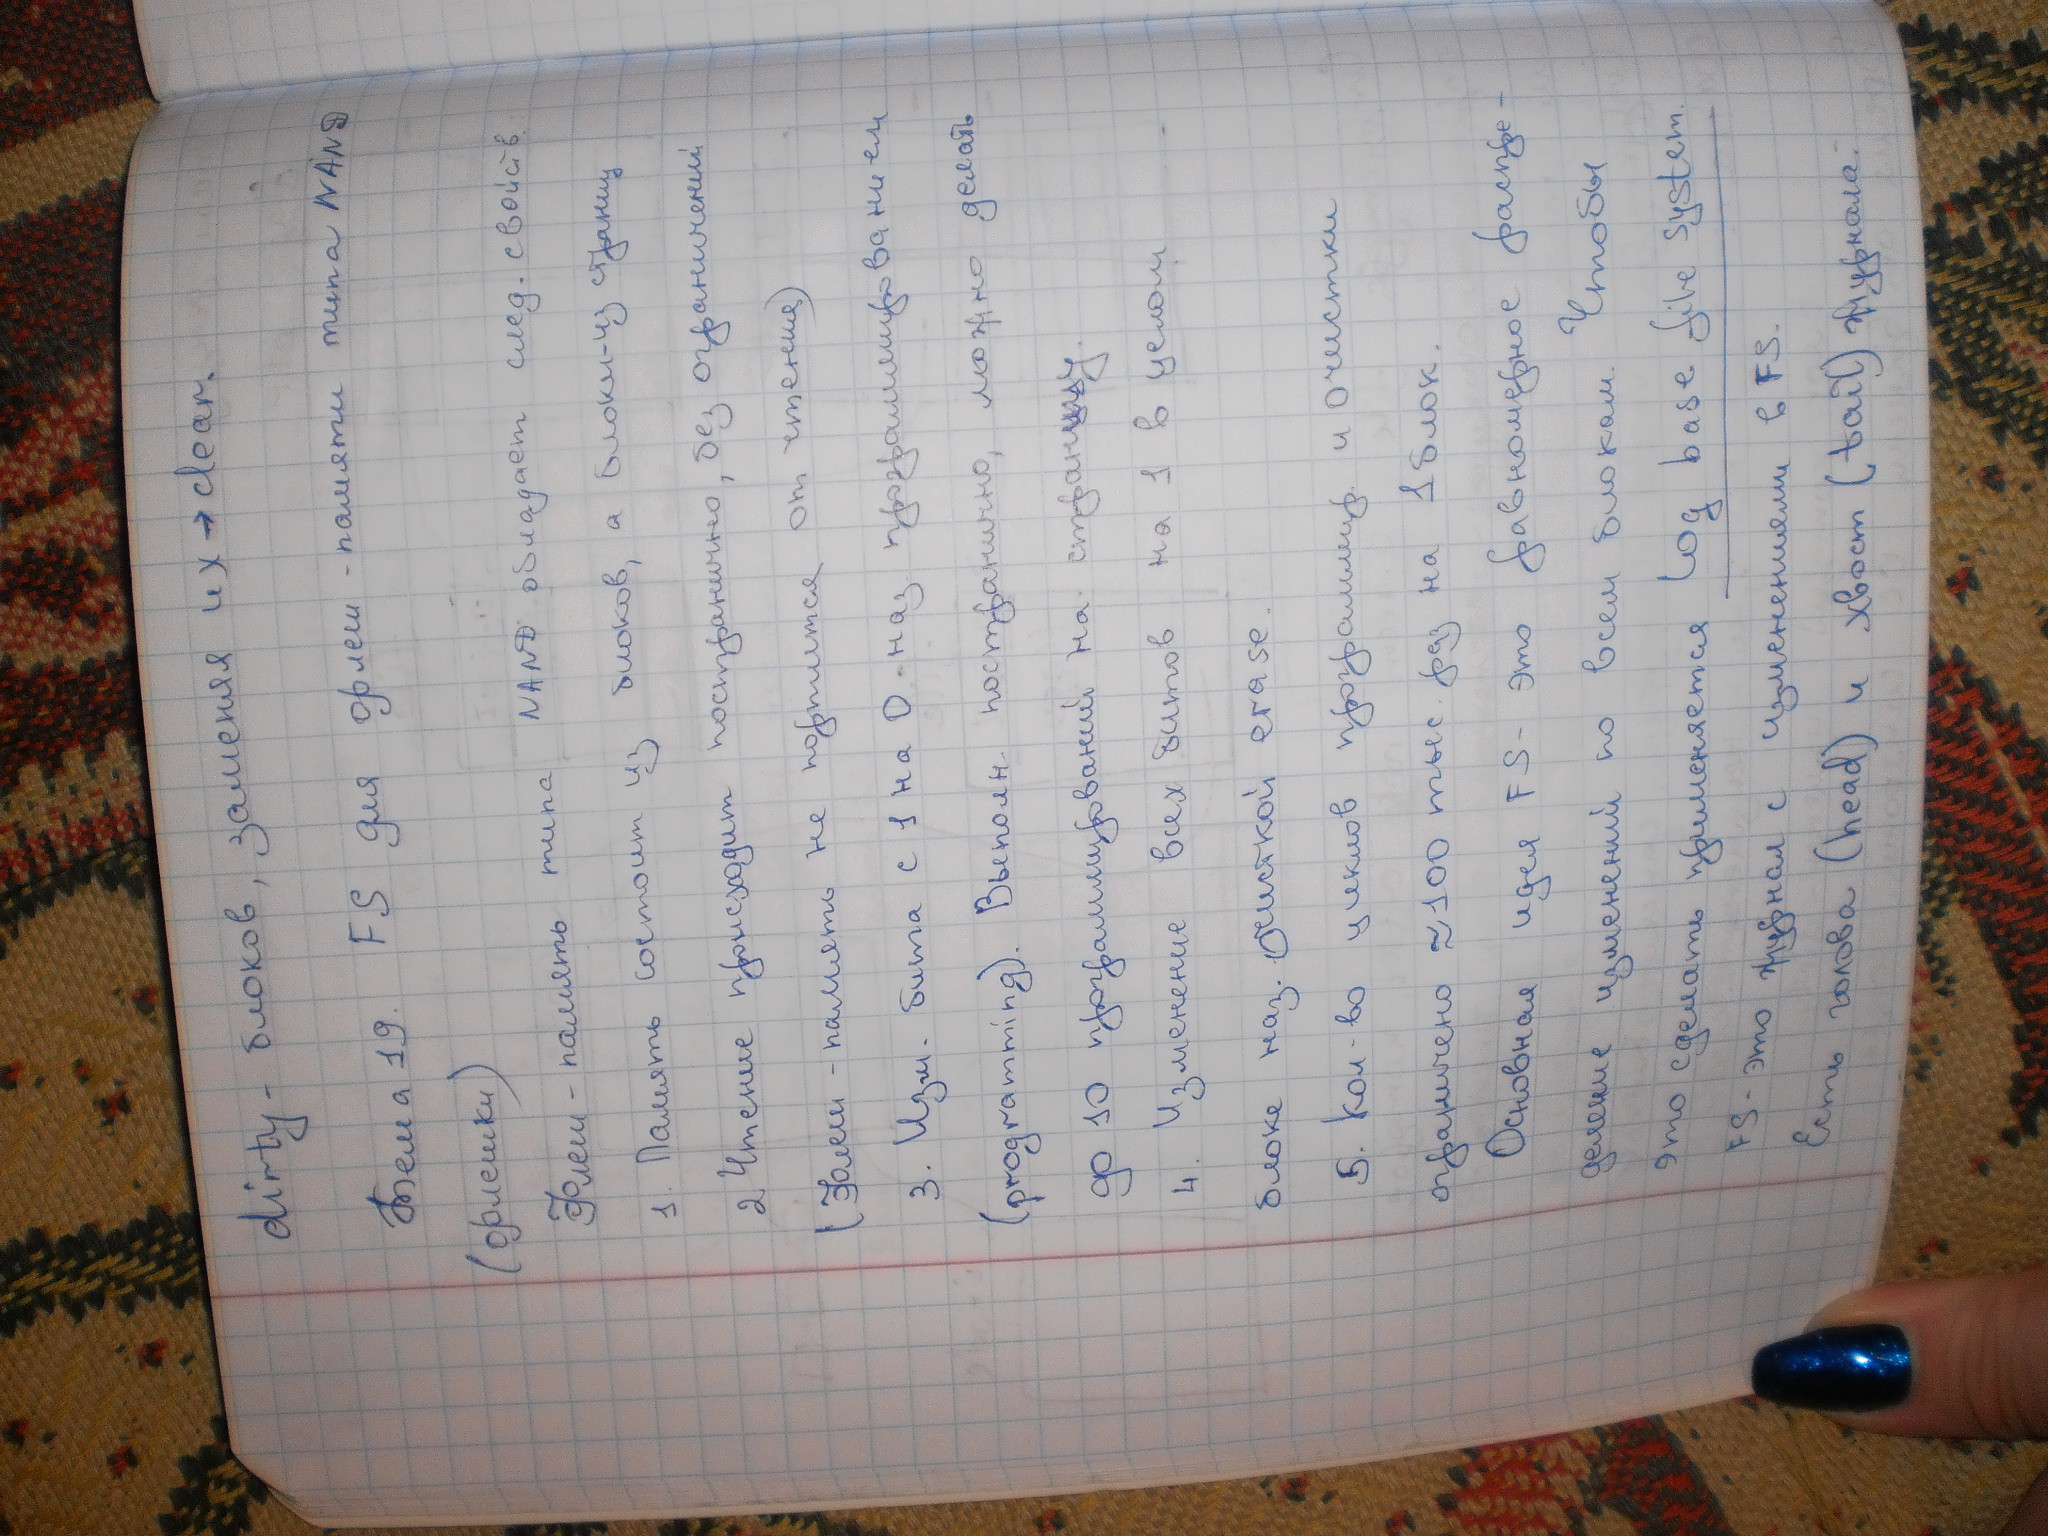 dirty - блоков, заменяя их → clear.
Тема 19. FS для флеш-памяти типа NAND
(флешки)
Флеш-память типа NAND обладает след. свойств.
1. Память состоит из блоков, а блоки-из страниц
2 Чтение происходит постранично, без ограничений
(Флеш-память не портится от чтения)
3. Изм. бита с 1 на 0 - наз программированием
(programming). Выполн. постранично, можно делать
до 10 программирований на страницу.
4. Изменение всех битов на 1 в целом
блоке наз. очисткой erase.
5. Кол-во циклов программир. и очистки
ограничено ≈100 тыс. раз на 1 блок.
Основная идея FS - это равномерное распре-
деление изменений по всем блокам. Чтобы
это сделать применяется Log base file system.
FS - это журнал с изменениями в FS.
Есть голова (head) и хвост (tail) журнала.